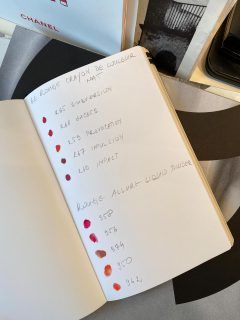 CHANEL
LE ROUGE CRAYON DE COULEUR
MAT
265 SUBVERSION
261 EXCESS
259 PROVOCATION
257 IMPULSION
250 IMPACT
ROUGE ALLURE LIQUID POWDER
958
956
974
950
962